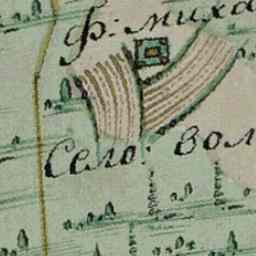 ф: миха
Село: вол